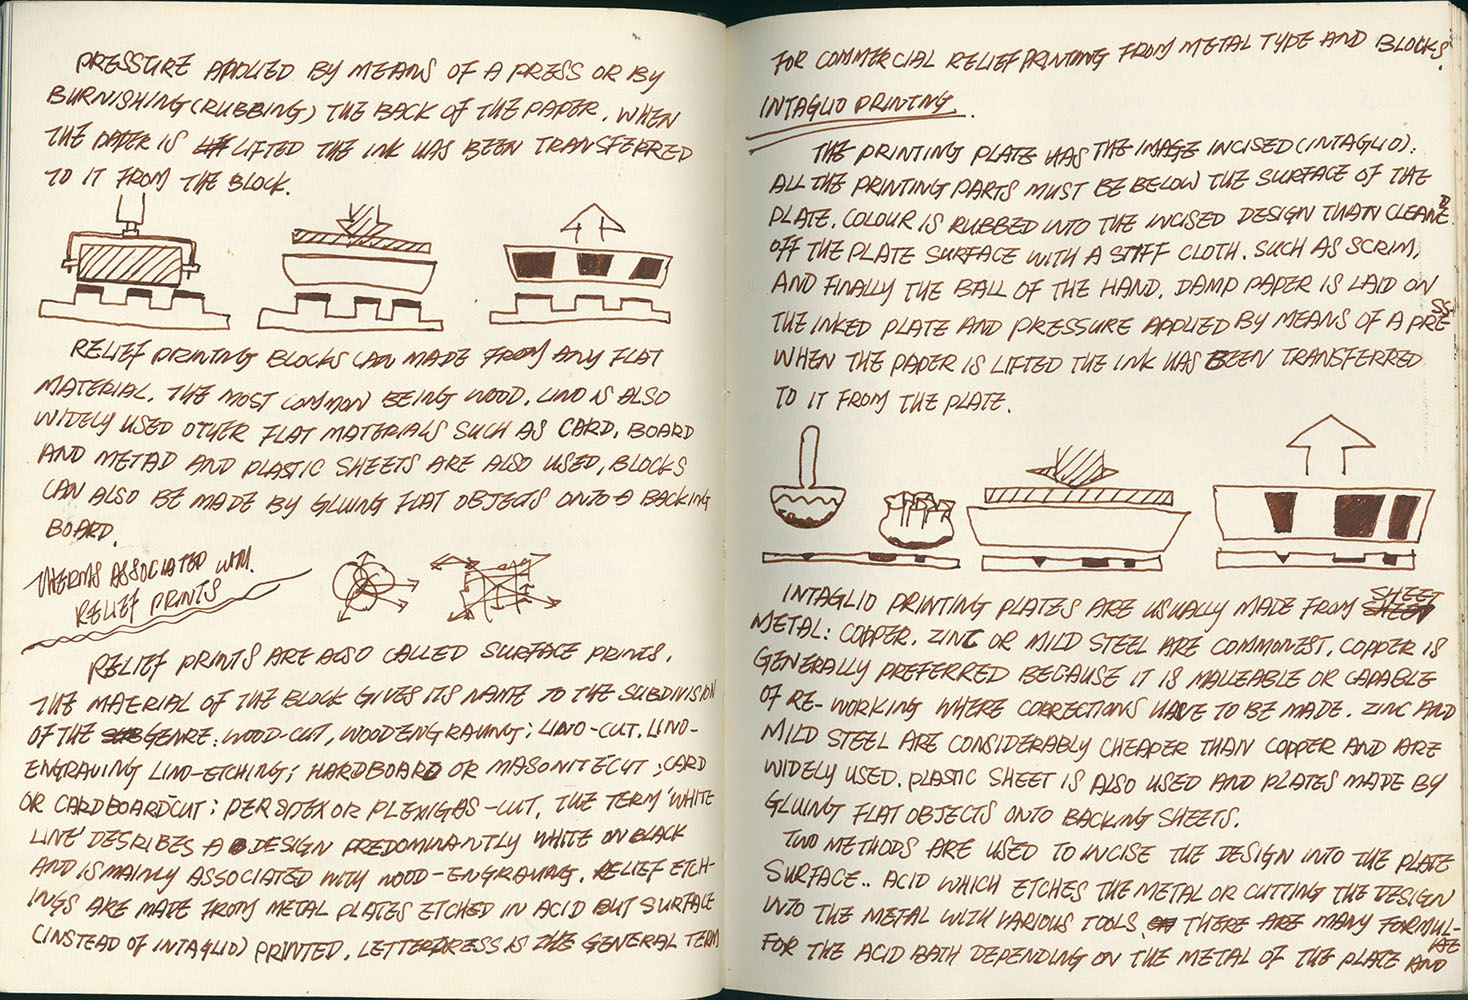 PRESSURE APPLIED BY MEANS OF A PRESS OR BY
BURNISHING (RUBBING) THE BACK OF THE PAPER. WHEN
THE PAPER IS LIFTED THE INK HAS BEEN TRANSFERRED
TO IT FROM THE BLOCK.
RELIEF PRINTING BLOCKS CAN MADE FROM ANY FLAT
MATERIAL. THE MOST COMMON BEING WOOD. LINO IS ALSO
WIDELY USED OTHER FLAT MATERIALS SUCH AS CARD, BOARD
AND METAD AND PLASTIC SHEETS ARE ALSO USED, BLOCKS
CAN ALSO BE MADE BY GLUING FLAT OBJECTS ONTO A BACKING
BOARD.
THERMS ASSOCIATED WITH.
RELIEF PRINTS
RELIEF PRINTS ARE ALSO CALLED SURFACE PRINTS.
THE MAERIAL OF THE BLOCK GIVES ITS NAME TO THE SUBDIVISION
OF THE GENRE: WOOD-CUT, WOODENGRAVING; LINO-CUT. LINO-
ENGRAVING LINO-ETCHING; HARDBOARD OR MASONITECUT, CARD
OR CARDBOARDCUT; PERSPEX OR PLEXIGLAS-CUT. THE TERM 'WHITE
LINE' DESRIBES A DESIGN PREDOMINANTLY WHITE ON BLACK
AND IS MAINLY ASSOCIATED WITH WOOD-ENGRAVING. RELIEF ETCH-
INGS ARE MADE FROM METAL PLATES ETCHED IN ACID BUT SURFACE
(INSTEAD OF INTAGLIO) PRINTED. LETTERPRESS IS THE GENERAL TERM
FOR COMMERCIAL RELIEF PRINTING FROM METAL TYPE AND BLOCKS.
INTAGLIO PRINTING.
THE PRINTING PLATE HAS THE IMAGE INCISED (INTAGLIO):
ALL THE PRINTING PARTS MUST BE BELOW THE SURFACE OF THE
PLATE. COLOUR IS RUBBED INTO THE INCISED DESIGN THAN CLEANED
OFF THE PLATE SURFACE WITH A STIFF CLOTH. SUCH AS SCRIM,
AND FINALLY THE BALL OF THE HAND. DAMP PAPER IS LAID ON
THE INKED PLATE AND PRESSURE APPLIED BY MEANS OF A PRESS.
WHEN THE PAPER IS LIFTED THE INK HAS BEEN TRANSFERRED
TO IT FROM THE PLATE.
INTAGLIO PRINTING PLATES ARE USUALLY MADE FROM SHEET
METAL: COPPER. ZINC OR MILD STEEL ARE COMMONEST. COPPER IS
GENERALLY PREFERRED BECAUSE IT IS MALLEABLE OR CAPABLE
OF RE-WORKING WHERE CORRECTIONS HAVE TO BE MADE. ZINC AND
MILD STEEL ARE CONSIDERABLY CHEAPER THAN COPPER AND ARE
WIDELY USED. PLASTIC SHEET IS ALSO USED AND PLATES MADE BY
GLUING FLAT OBJECTS ONTO BACKING SHEETS.
TWO METHODS ARE USED TO INCISE THE DESIGN INTO THE PLATE
SURFACE.. ACID WHICH ETCHES THE METAL OR CUTTING THE DESIGN
INTO THE METAL WITH VARIOUS TOOLS. THERE ARE MANY FORMUL-
AE
FOR THE ACID BATH DEPENDING ON THE METAL OF THE PLATE AND